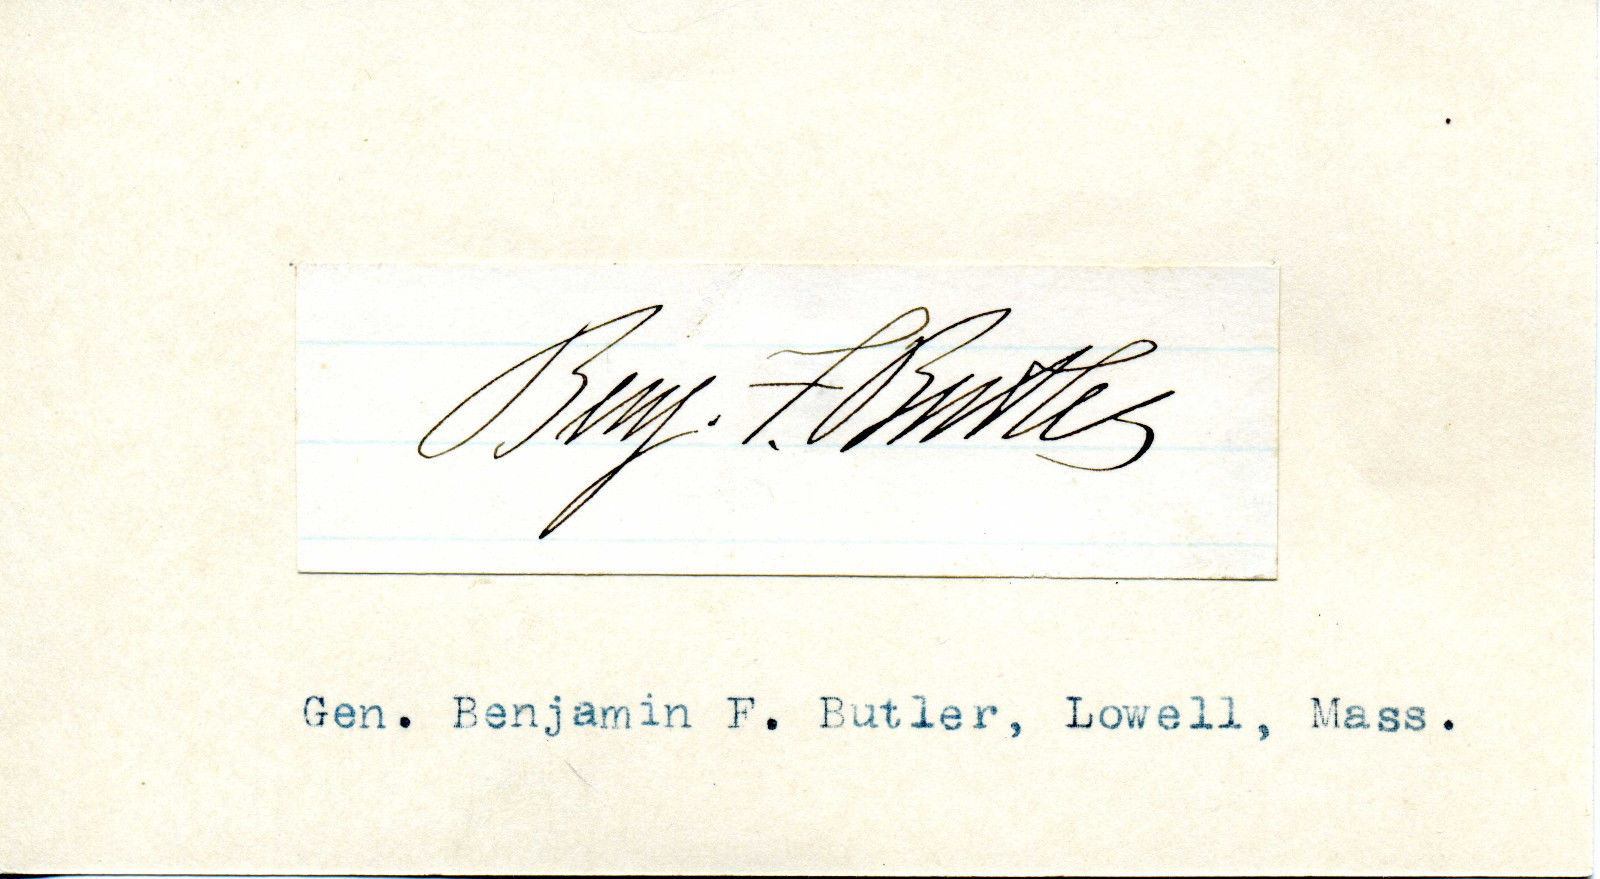 Benj. F. Butler
Gen. Benjamin F. Butler, Lowell, Mass.